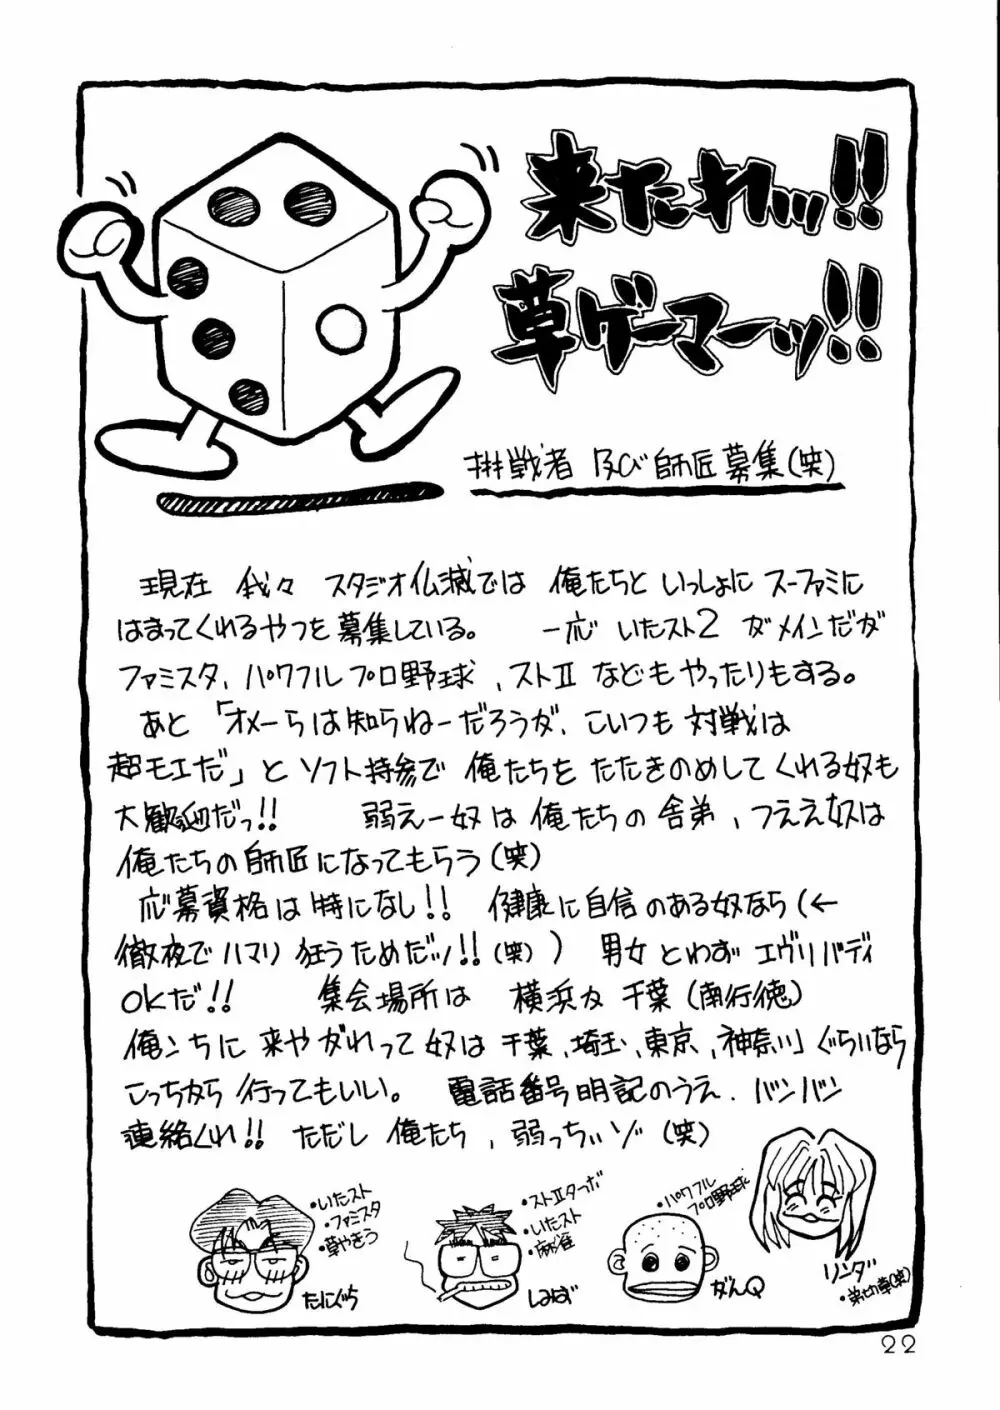 来たれッ!!
草ゲーマーッ!!
挑戦者 及び師匠募集(笑)
現在 我々 スタジオ仏滅では 俺たちと いっしょに スーファミに
はまってくれるやつを募集している。 一応 いたスト2 がメインだが
ファミスタ、パワフルプロ野球、ストⅡ などもやったりもする。
あと「オメーらは知らねーだろうが、こいつも 対戦は
超モエだ」と ソフト持参で 俺たちを たたきのめしてくれる奴も
大歓迎だっ!! 弱えー奴は俺たちの舎弟、つええ奴は
俺たちの師匠になってもらう(笑)
応募資格は特になし!! 健康に自信のある奴なら(←
徹夜でハマリ狂うためだッ!!(笑)) 男女とわず エヴリバディ
OKだ!! 集会場所は 横浜及千葉(南行徳)
俺ンちに 来やがれって奴は 千葉、埼玉、東京、神奈川ぐらいなら
こっちから行ってもいい。 電話番号明記のうえ、バンバン
連絡くれ!! ただし 俺たち、弱っちいゾ(笑)
・いたスト
・ファミスタ
・草やきう
たにぐち
・ストⅡターボ
・いたスト
・麻雀
しみず
・パワフル
プロ野球
がんQ
リンダ
・弟切草(笑)
22